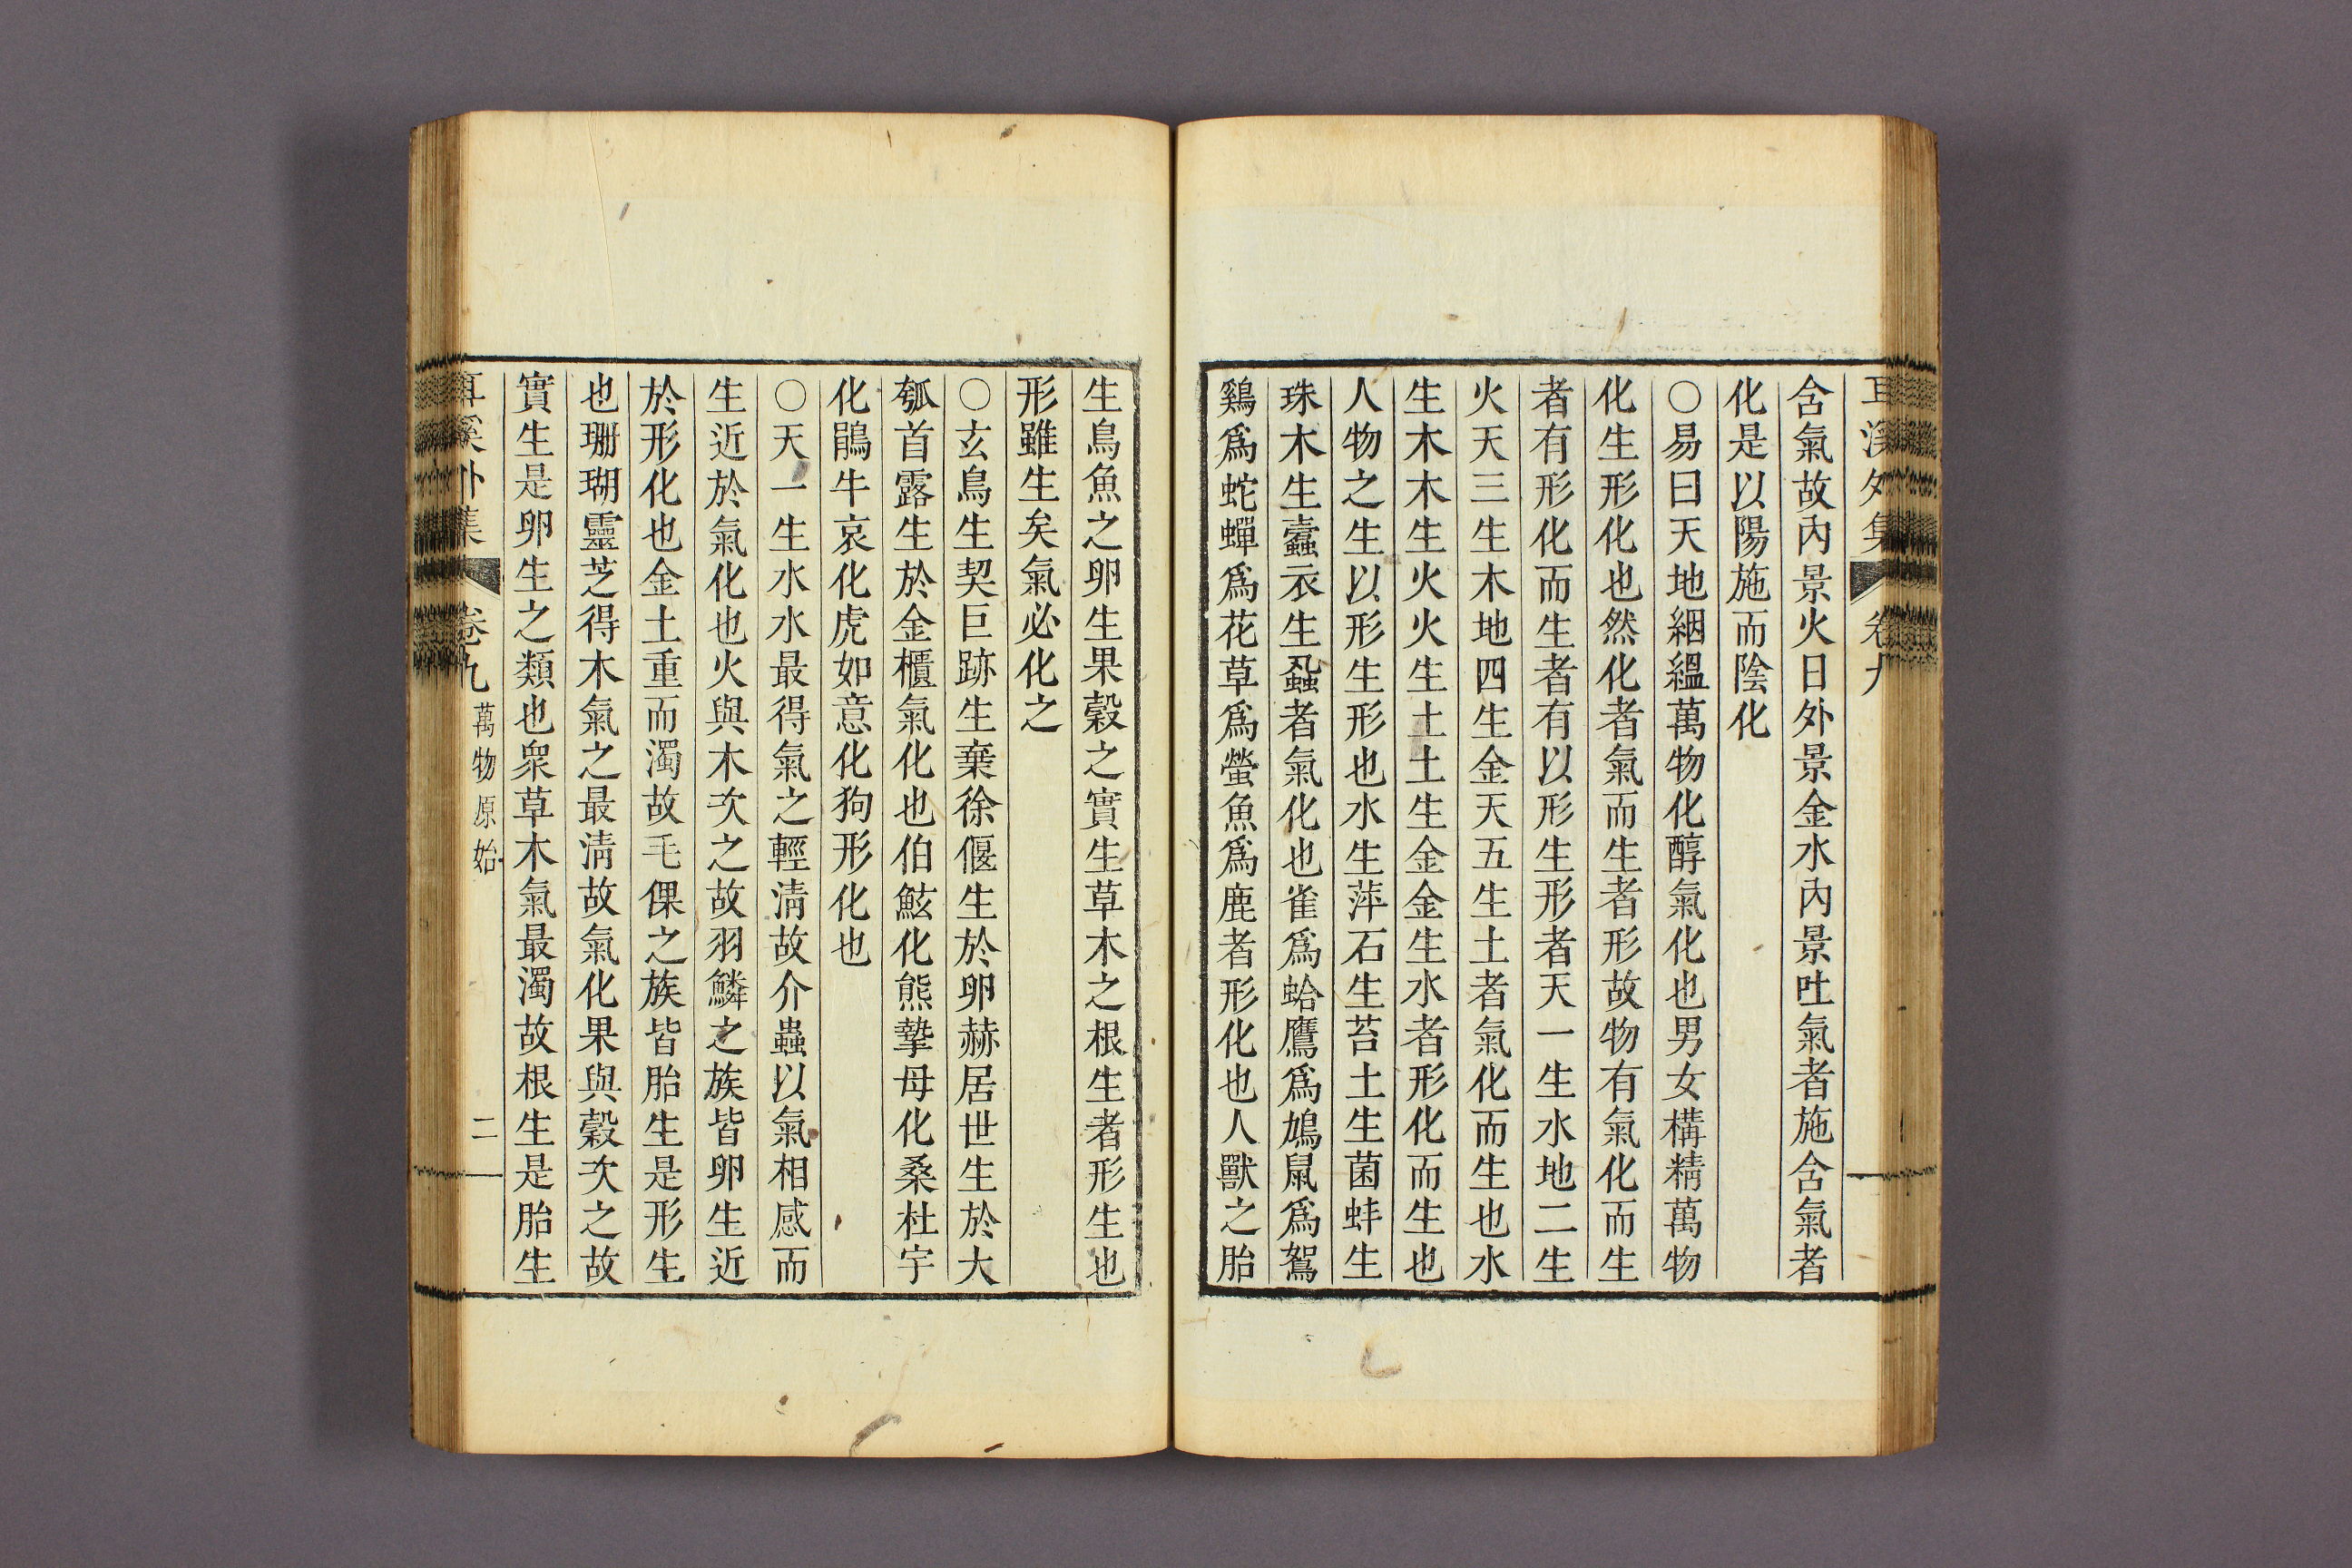 耳溪外集 卷九
含氣故內景火日外景金水內景吐氣者施含氣者
化是以陽施而陰化
○易曰天地絪縕萬物化醇氣化也男女構精萬物
化生形化也然化者氣而生者形故物有氣化而生
者有形化而生者有以形生形者天一生水地二生
火天三生木地四生金天五生土者氣化而生也水
生木木生火火生土土生金金生水者形化而生也
人物之生以形生形也水生萍石生苔土生菌蚌生
珠木生蠹衣生蝨者氣化也雀爲蛤鷹爲鳩鼠爲鴽
鷄爲蛇蟬爲花草爲螢魚爲鹿者形化也人獸之胎
生鳥魚之卵生果穀之實生草木之根生者形生也
形雖生矣氣必化之
○玄鳥生契巨跡生棄徐偃生於卵赫居世生於大
瓠首露生於金櫃氣化也伯鮌化熊摯母化桑杜宇
化鵑牛哀化虎如意化狗形化也
○天一生水水最得氣之輕淸故介蟲以氣相感而
生近於氣化也火與木次之故羽鱗之族皆卵生近
於形化也金土重而濁故毛倮之族皆胎生是形生
也珊瑚靈芝得木氣之最淸故氣化果與穀次之故
實生是卵生之類也衆草木氣最濁故根生是胎生
耳溪外集 卷九 萬物原始 二